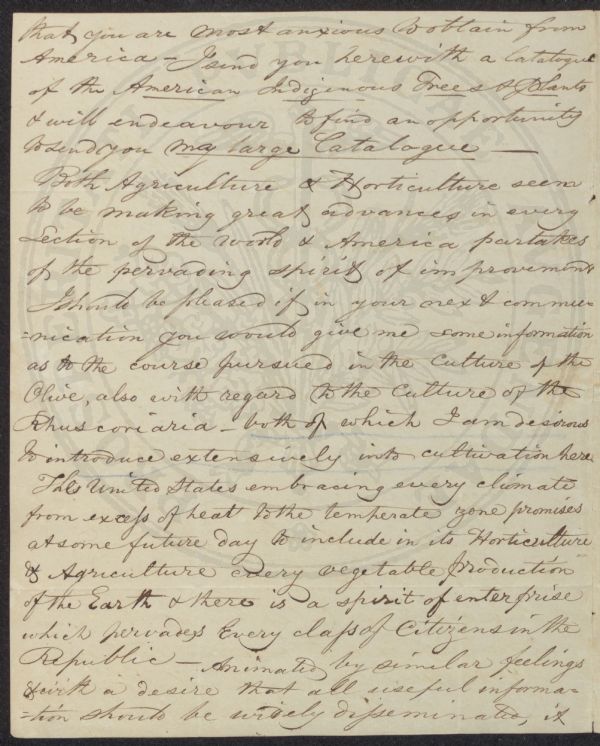 that you are most anxious to obtain from
America – I send you herewith a Catalogue
of the American Indigenous Trees & Plants
& will endeavour to find an opportunity
to send you my large Catalogue —
Both Agriculture & Horticulture seem
to be making great advances in every
section of the world & America partakes
of the pervading spirit of improvement
I should be pleased if in your next commu=
=nication you would give me some information
as to the course pursued in the Culture of the
Olive, also with regard to the Culture of the
Rhus coriaria – both of which I am desirous
to introduce extensively into cultivation here
The United States embracing every climate
from excess of heat to the temperate zone promises
at some future day to include in its Horticulture
& Agriculture every vegetable production
of the Earth & there is a spirit of enterprise
which pervades Every class of Citizens in the
Republic – Animated by similar feelings
& with a desire that all useful informa=
=tion should be widely disseminated, it